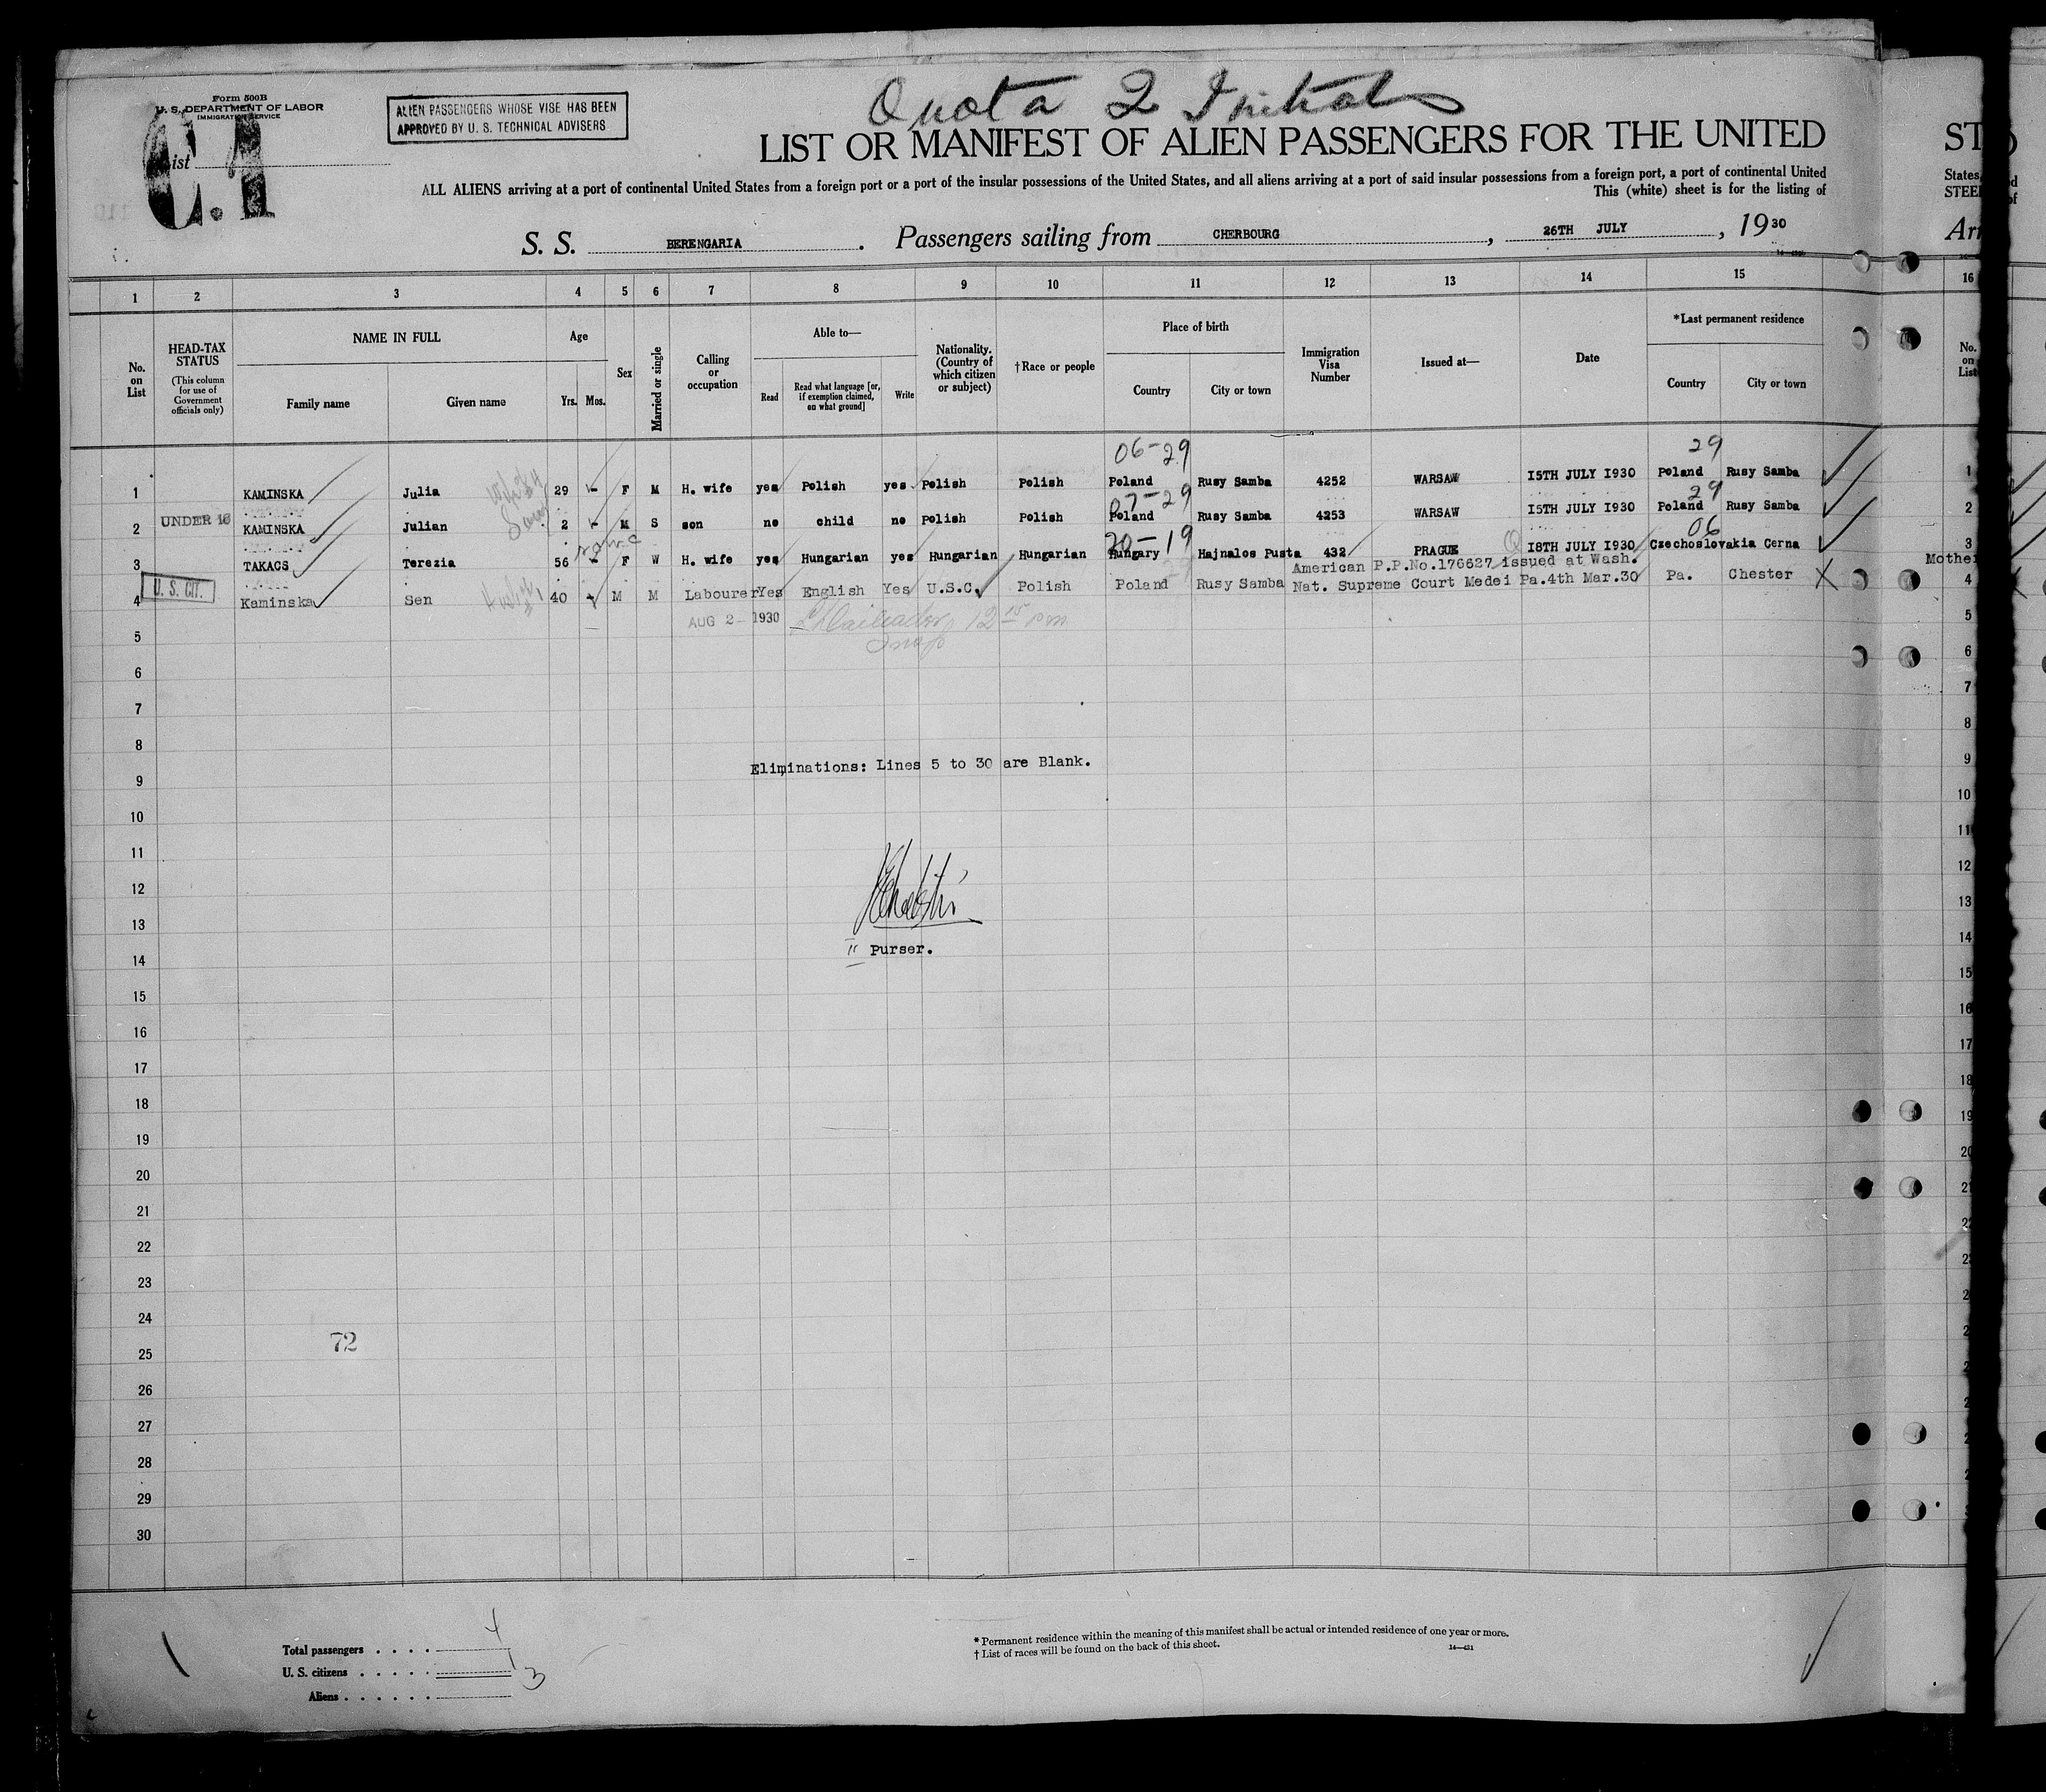 Quota 2 Initials
Form 500B
U. S. DEPARTMENT OF LABOR
IMMIGRATION SERVICE
ALIEN PASSENGERS WHOSE VISE HAS BEEN
APPROVED BY U. S. TECHNICAL ADVISERS
LIST OR MANIFEST OF ALIEN PASSENGERS FOR THE UNITED
ist
C.1
ALL ALIENS arriving at a port of continental United States from a foreign port or a port of the insular possessions of the United States, and all aliens arriving at a port of said insular possessions from a foreign port, a port of continental United
This (white) sheet is for the listing of
S. S. BERENGARIA. Passengers sailing from CHERBOURG, 26TH JULY, 1930
1 2 3 4 5 6 7 8 9 10 11 12 13 14 15
No. on List
HEAD-TAX STATUS
(This column for use of Government officials only)
NAME IN FULL
Family name Given name
Age
Yrs. Mos.
Sex
Married or single
Calling or occupation
Able to—
Read Read what language [or, if exemption claimed, on what ground] Write
Nationality. (Country of which citizen or subject)
†Race or people
Place of birth
Country City or town
Immigration Visa Number
Issued at—
Date
*Last permanent residence
Country City or town
06-29 29
1 KAMINSKA Julia 29 - F M H. wife yes Polish yes Polish Polish Poland Rusy Samba 4252 WARSAW I5TH JULY I930 Poland Rusy Samba
07-29 29
2 UNDER 16 KAMINSKA Julian 2 - M S son no child no Polish Polish Poland Rusy Samba 4253 WARSAW I5TH JULY I930 Poland Rusy Samba
20-19 06
3 TAKACS Terezia 56 - F W H. wife yes Hungarian yes Hungarian Hungarian Hungary Hajnalos Pusta 432 PRAGUE I8TH JULY I930 Czechoslovakia Cerna
American P.P.No.176627 issued at Wash.
U. S. CIT.
4 Kaminska Sen 40 M M Labourer Yes English Yes U.S.C. Polish Poland Rusy Samba Nat. Supreme Court Medei Pa.4th Mar.30 Pa. Chester
AUG 2 1930
5
6
7
8
Eliminations: Lines 5 to 30 are Blank.
9
10
11
12
13
II Purser.
14
15
16
17
18
19
20
21
22
23
24
72
25
26
27
28
29
30
Total passengers . . . . 4
U. S. citizens . . . . . 1
Aliens . . . . . . 3
* Permanent residence within the meaning of this manifest shall be actual or intended residence of one year or more.
† List of races will be found on the back of this sheet.
14—431
ST
States,
STEE
Arr
16
No. on List
1
2
3
Mother
4
5
6
7
8
9
10
11
12
13
14
15
16
17
18
19